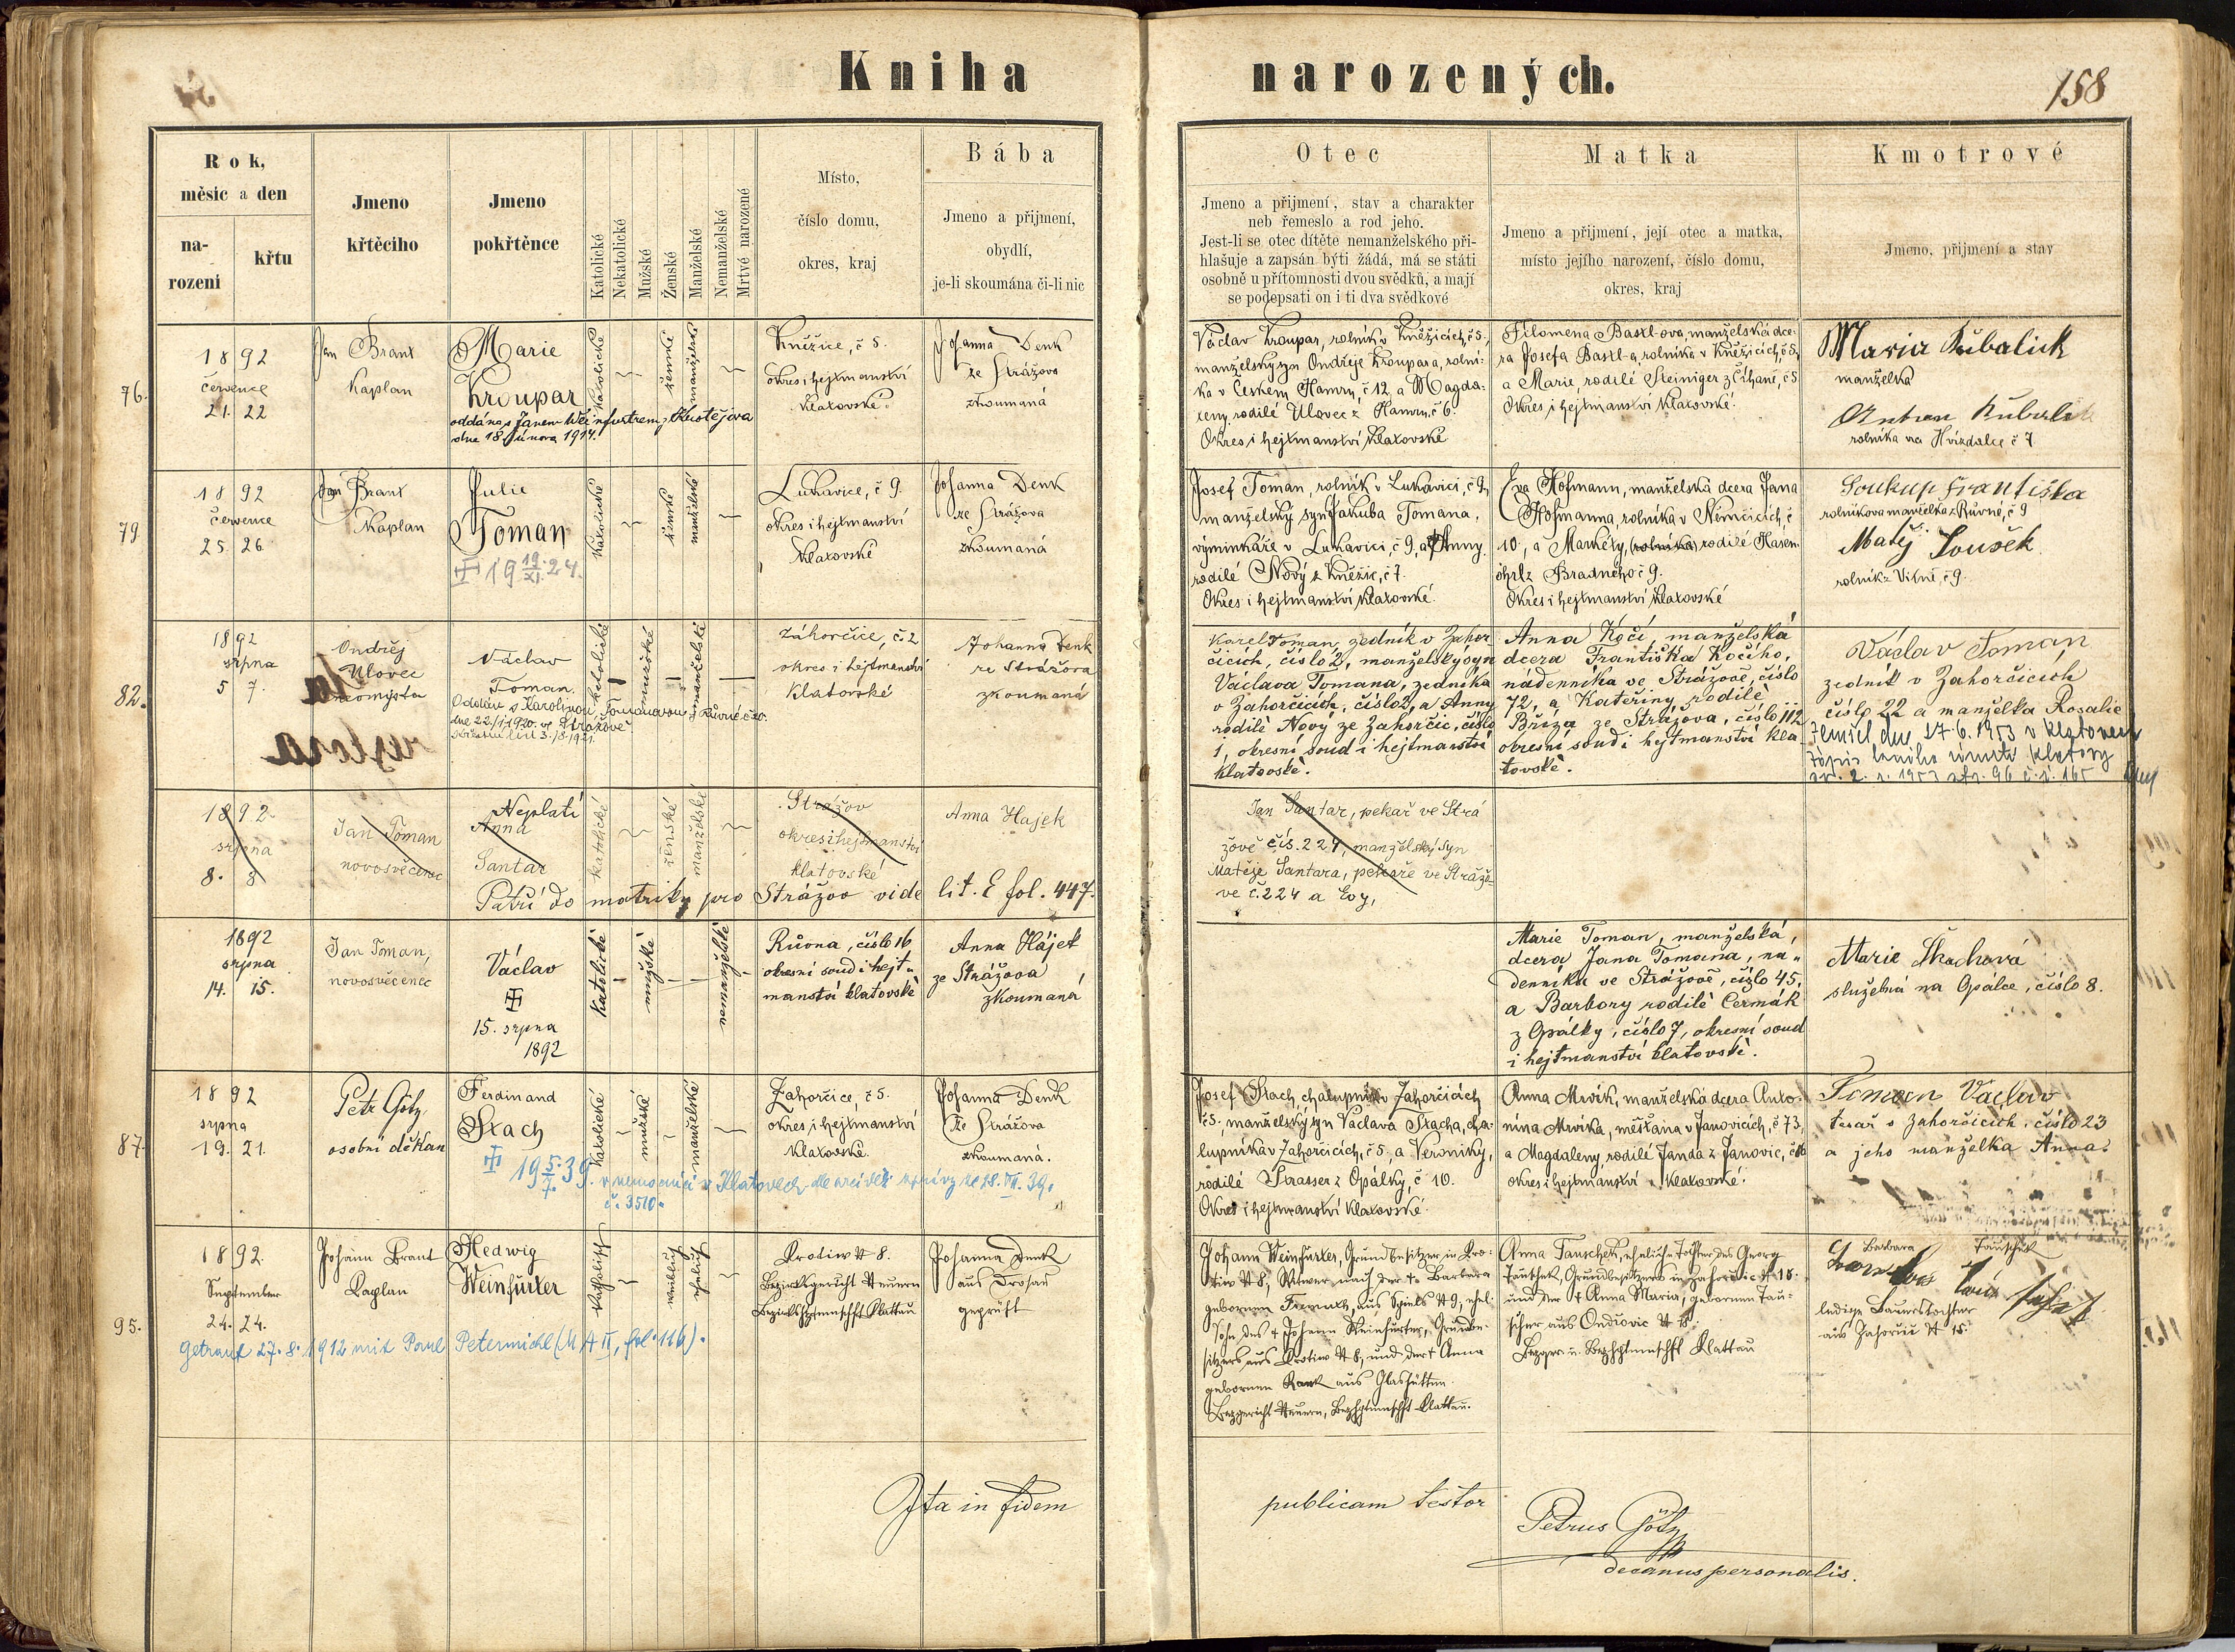 Kniha narozených.
158
Rok,
měsíc a den
na-
rození
křtu
Jmeno
křtěcího
Jmeno
pokřtěnce
Katolické
Nekatolické
Mužské
Ženské
Manželské
Nemanželské
Mrtvé narozené
Místo,
číslo domu,
okres, kraj
Bába
Jmeno a přijmení,
obydlí,
je-li skoumána či-li nic
Otec
Jmeno a přijmení, stav a charakter
neb řemeslo a rod jeho.
Jest-li se otec dítěte nemanželského při-
hlašuje a zapsán býti žádá, má se státi
osobně u přítomnosti dvou svědků, a mají
se podepsati on i ti dva svědkové
Matka
Jmeno a přijmení, její otec a matka,
místo jejího narození, číslo domu,
okres, kraj
Kmotrové
Jmeno, přijmení a stav
76.
1892
července
21. 22
Jan Brant
Kaplan
Marie
Kroupar
oddána s Janem
dne 18. února 1914.
katolické
ženské
manželské
Kněžice, č 5.
okres i hejtmanství
Klatovské.
Johanna Denk
ze Strážova
zkoumaná
Václav Kroupar, rolník v Kněžicích, č 5,
manželský syn Ondřeje Kroupara, rolní-
ka v Českém Hamru, č 12, a Magda-
leny, rodilé Ulovec z Hamru, č 6.
Okres i hejtmanství Klatovské
Filomena Bastl-ova, manželská dce-
ra Josefa Bastl-a, rolníka v Kněžicích, č 5,
a Marie, rodilé Steiniger z Číhaně, č 5
Okres i hejtmanství Klatovské.
Maria Kubalick
manželka
rolníka na Hvizdalce č 7
79.
1892
července
25. 26.
Jan Brant
Kaplan
Julie
Toman
19 19/XI. 24.
katolické
ženské
manželské
Lukavice, č 9.
okres i hejtmanství
Klatovské
Johanna Denk
ze Strážova
zkoumaná
Josef Toman, rolník v Lukavici, č 9,
manželský syn Jakuba Tomana,
výminkáře v Lukavici, č 9, a Anny
rodilé Nový z Kněžic, č 7.
Okres i hejtmanství Klatovské.
Eva Hofmann, manželská dcera Jana
Hofmanna, rolníka v Němčicích, č
10, a Markéty, (rolníka) rodilé Hasen-
öhrl z Bradného č 9.
Okres i hejtmanství Klatovské
Soukup Františka
rolníkova manželka z Růvné, č 9
Matěj Soušek
rolník z Vítně, č 9.
82.
1892
srpna
5 7.
Ondřej
Ulovec
neomysta
Václav
Toman.
Oddán s Karolinou Tomanovou z Růvné č. 20.
dne 22./1 1920. ve Strážově
Křestní list 3./8. 1921.
katolické
mužské
manželské
Záhorčice, č. 2
okres i hejtmanství
Klatovské
Johanna Denk
ze Strážova
zkoumaná
Karel Toman, zedník v Zahor
čicích, číslo 2, manželský syn
Václava Tomana, zedníka
v Zahorčicích, číslo 2, a Anny
rodilé Nový ze Zahorčic, číslo
1, okresní soud i hejtmanství
Klatovské.
Anna Kočí, manželská
dcera Františka Kočího,
nádenníka ve Strážově, číslo
72, a Kateřiny, rodilé
Bříza ze Strážova, číslo 112
okresní soud i hejtmanství kla-
tovské.
Václav Toman
zedník v Zahorčicích
číslo 22 a manželka Rosalie
Zemřel dne 17.6.1953 v Klatovech
1892
srpna
8. 8
Jan Toman
novosvěcenec
Neplatí
Anna
Santar
Patří do matriky pro Strážov vide lit. E fol. 447.
katolické
ženské
manželské
Strážov
okres i hejtmanství
klatovské
Anna Hajek
Jan Santar, pekař ve Strá
žově čís. 224, manželský syn
Matěje Santara, pekaře ve Strážo-
ve č. 224 a Evy,
1892
srpna
14. 15.
Jan Toman,
novosvěcenec
Václav
15. srpna
1892
katolické
mužské
nemanželské
Růvna, číslo 16
okresní soud i hejt-
manství klatovské
Anna Hájek
ze Strážova
zkoumaná
Marie Toman, manželská,
dcera Jana Tomana, ná-
denníka ve Strážově, číslo 45,
a Barbory rodilé Čermák
z Opálky, číslo 7, okresní soud
i hejtmanství klatovské.
Marie
služebná na Opálce, číslo 8.
87.
1892
srpna
19. 21.
Petr Götz
osobní děkan
Ferdinand
Stach
19 5./7. 39. v nemocnici v Klatovech dle
č. 3510.
katolické
mužské
manželské
Zahorčice, č 5.
okres i hejtmanství
Klatovské.
Johanna Denk
ze Strážova
zkoumaná.
Josef Stach, chalupník v Zahorčicích
č 5, manželský syn Václava Stacha, cha-
lupníka v Zahorčicích, č 5, a Veroniky,
rodilé Strasser z Opálky, č 10.
Okres i hejtmanství Klatovské.
Anna Mrvík, manželská dcera Anto-
nína Mrvíka, měšťana v Janovicích, č 73,
a Magdaleny, rodilé Janda z Janovic, č 16
okres i hejtmanství Klatovské.
Toman Václav
tesař v Zahorčicích, číslo 23
a jeho manželka Anna.
95.
1892.
September
24. 24.
Johann Brant
Kaplan
Hedwig
Weinfurter
Getraut 27. 8. 1912 mit Paul Petermichl (M A II, fol. 116).
katholisch
weiblich
ehelich
Krotiw N 8.
Bezirksgericht Neuern
Bezirkshptmnschft Klattau
Johanna Denk
aus Drosau
geprüft
Johann Weinfurter, Grundbesitzer in Kro-
tiw N 8, Witwer nach der † Barbara
Sohn des † Johann Weinfurter, Grundbe-
sitzers aus Krotiw N 8, und der † Anna
gebornen Rank aus Glashütten.
Bezgericht Neuern, Bezhptmnschft Klattau.
Anna Tauschek, eheliche Tochter des Georg
Tauschek, Grundbesitzers in Zahorcic N 18.
und der † Anna Maria, gebornen Tau-
scher aus Ondřovic N 18.
Bezger. u. Bezhptmnschft Klattau
Barbara Tauschek
ledige Bauerstochter
aus Zahorcic N 15.
Ita in fidem publicam testor
Petrus Götz
decanus personalis.